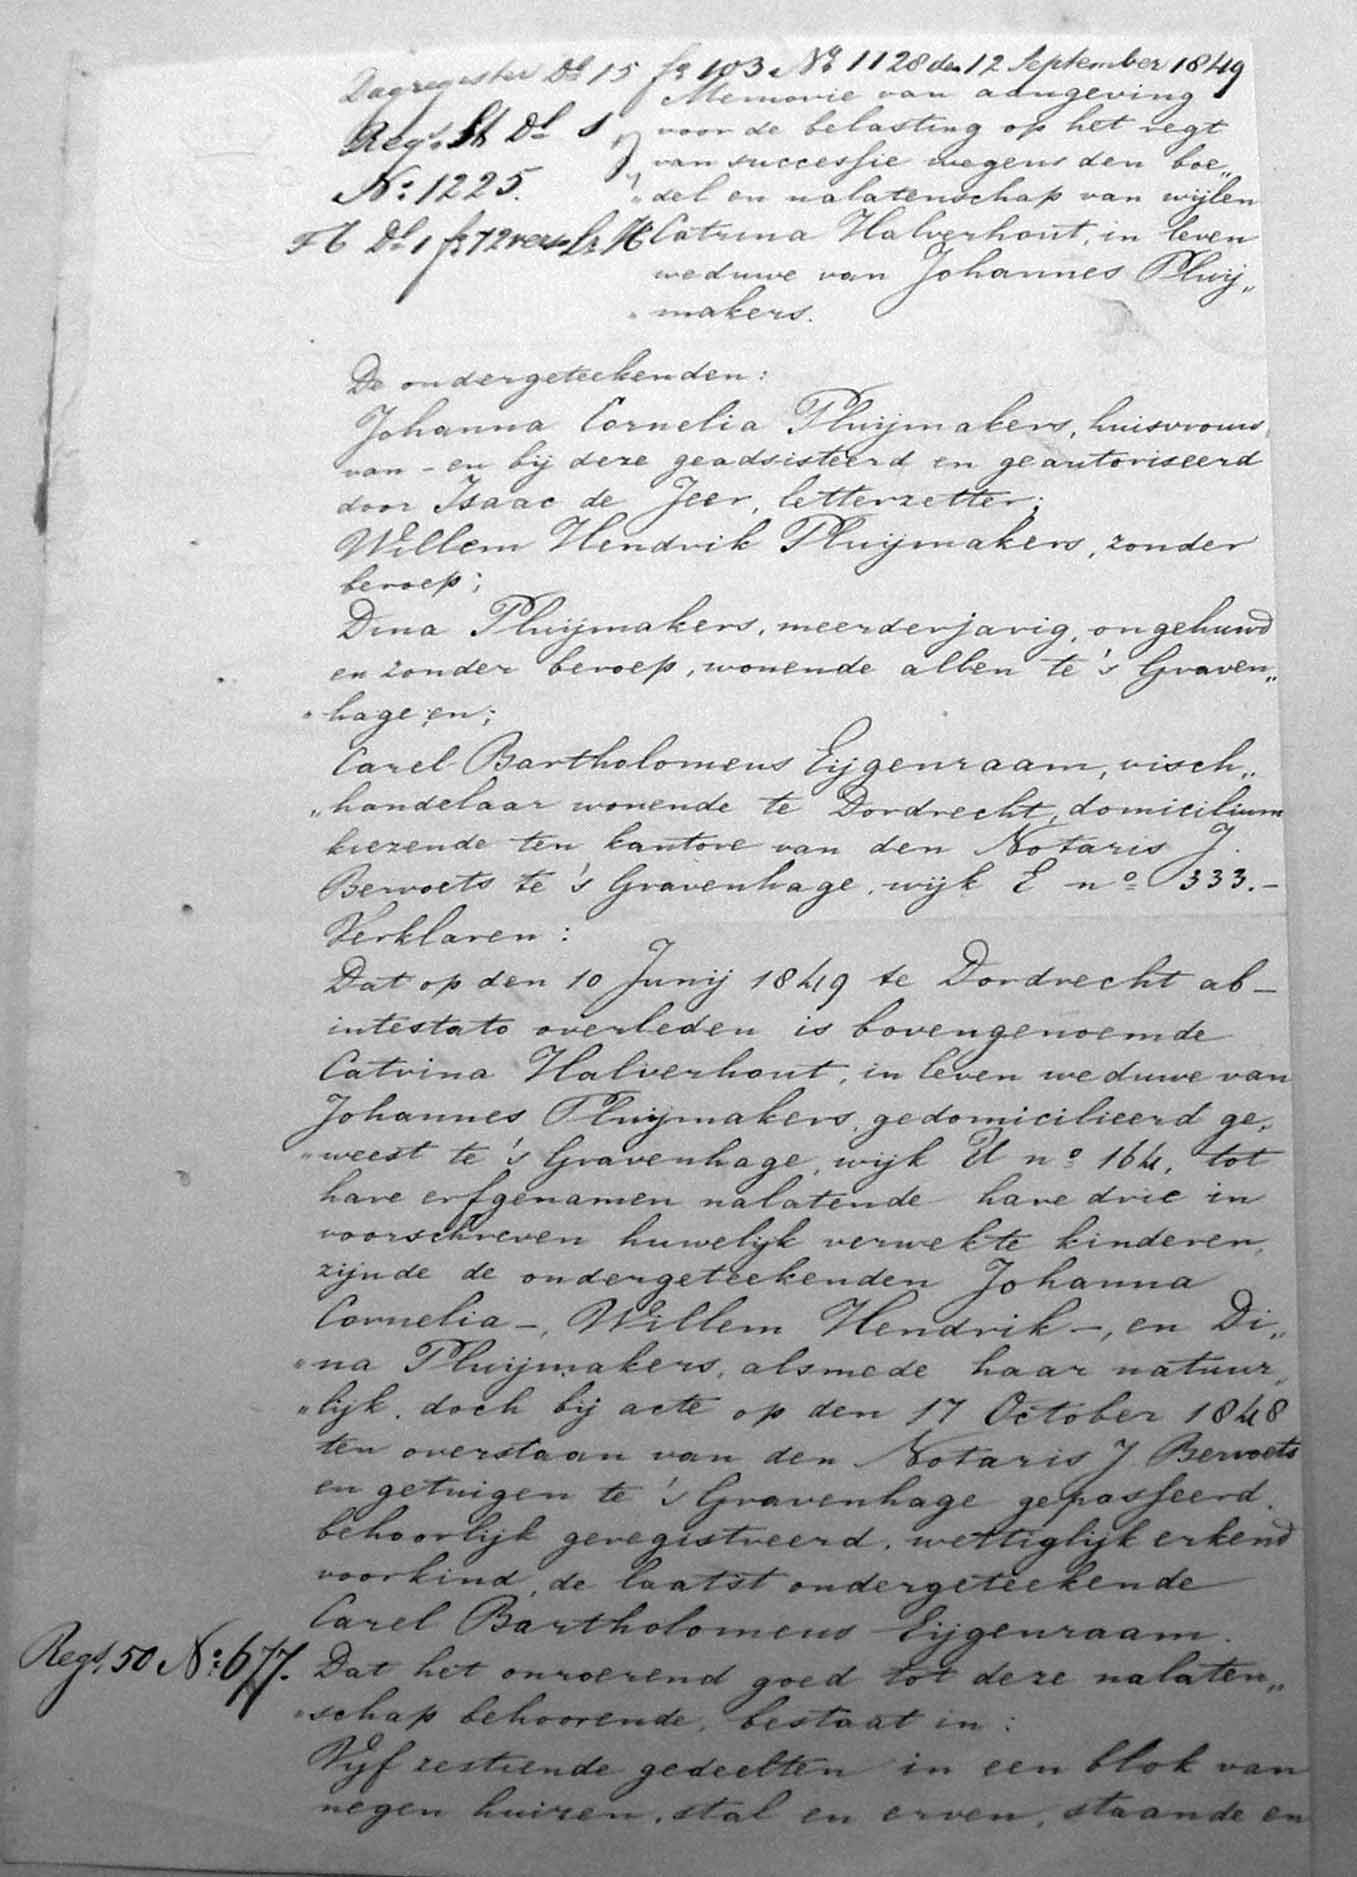 Dagregister Dl 15 fo 103 No 1128 den 12 September 1849
Memorie van aangeving
Reg. St Dl 1
voor de belasting op het regt
van successie wegens den boe„
No: 1225.
„del en nalatenschap van wijlen
Dl 1 fo 72 verso
Catrina Halverhout, in leven
weduwe van Johannes Pluij„
„makers.
De ondergeteekenden:
Johanna Cornelia Pluijmakers, huisvrouw
van - en bij deze geadsisteerd en geautoriseerd
door Isaac de Jeer, letterzetter;
Willem Hendrik Pluijmakers, zonder
beroep;
Dina Pluijmakers, meerderjarig, ongehuwd
en zonder beroep, wonende allen te 's Graven„
„hage en;
Carel Bartholomeus Eijgenraam, visch„
„handelaar wonende te Dordrecht, domicilium
kiezende ten kantore van den Notaris J.
Bervoets te 's Gravenhage, wijk E no 333.-
Verklaren:
Dat op den 10 Junij 1849 te Dordrecht ab-
intestato overleden is bovengenoemde
Catrina Halverhout, in leven weduwe van
Johannes Pluijmakers, gedomicilieerd ge„
„weest te 's Gravenhage, wijk U no 164, tot
hare erfgenamen nalatende hare drie in
voorschreven huwelijk verwekte kinderen,
zijnde de ondergeteekenden Johanna
Cornelia -, Willem Hendrik -, en Di„
„na Pluijmakers, alsmede haar natuur„
„lijk, doch bij acte op den 17 October 1848
ten overstaan van den Notaris J. Bervoets
en getuigen te 's Gravenhage gepasseerd,
behoorlijk geregistreerd, wettiglijk erkend
voorkind, de laatst ondergeteekende
Carel Bartholomeus Eijgenraam.
Regs. 50 No: 677.
Dat het onroerend goed tot deze nalaten„
„schap behoorende, bestaat in:
Vijf zestiende gedeelten in een blok van
negen huizen, stal en erven, staande en